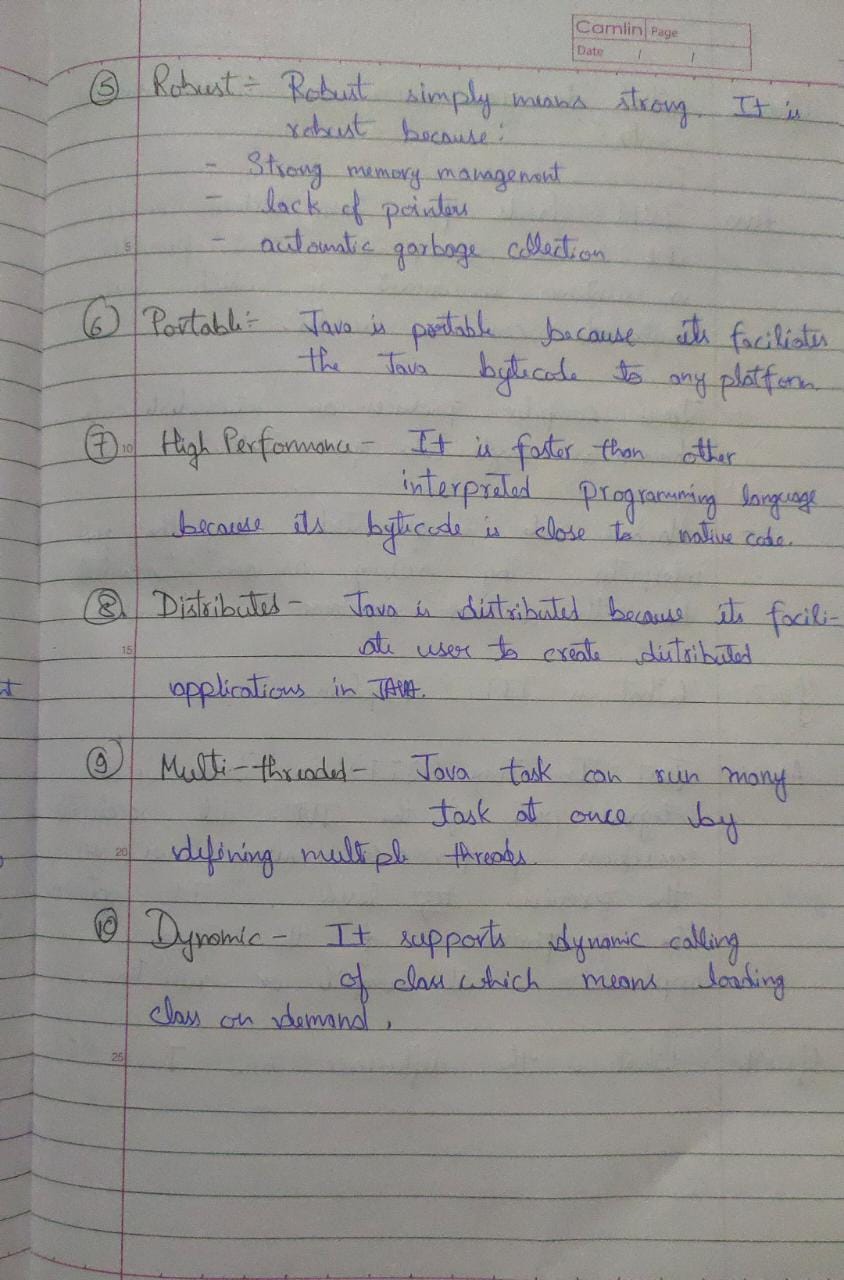 Camlin Page
Date / /
⑤ Robust :- Robust simply means strong. It is
robust because :
- Strong memory management
- lack of pointers
5
- automatic garbage collection
⑥ Portable :- Java is portable because its faciliates
the Java bytecode to any platform.
⑦ 10 High Performance - It is faster than other
interpreted programming language
because its bytecode is close to native code.
⑧ Distributed - Java is distributed because its facili-
15
ate user to create distributed
applications in JAVA.
⑨ Multi-threaded - Java task can run many
task at once by
20
defining multiple threads.
⑩ Dynamic - It supports dynamic calling
of class which means loading
class on demand.
25